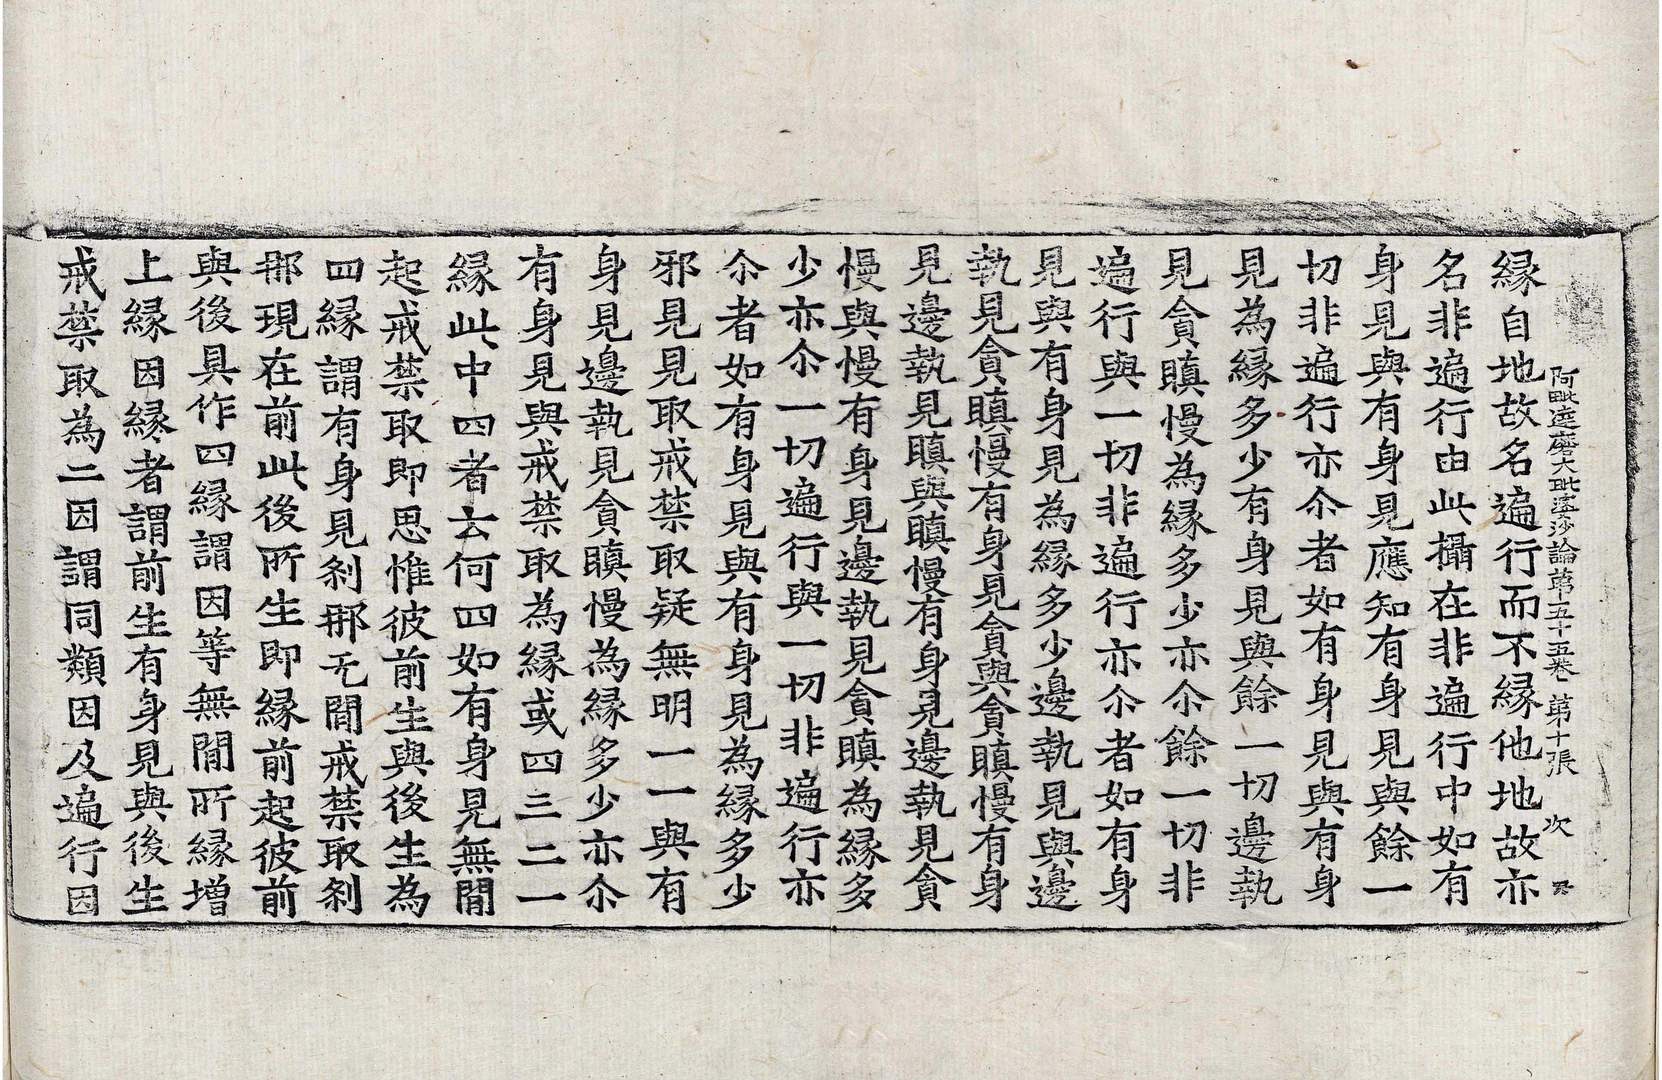 阿毗達磨大毗婆沙論第五十五卷 第十張 次
縁自地故名遍行而不縁他地故亦
名非遍行由此攝在非遍行中如有
身見與有身見應知有身見與餘一
切非遍行亦尒者如有身見與有身
見為縁多少有身見與餘一切邊執
見貪瞋慢為縁多少亦尒餘一切非
遍行與一切非遍行亦尒者如有身
見與有身見為縁多少邊執見與邊
執見貪瞋慢有身見貪與貪瞋慢有身
見邊執見瞋與瞋慢有身見邊執見貪
慢與慢有身見邊執見貪瞋為縁多
少亦尒一切遍行與一切非遍行亦
尒者如有身見與有身見為縁多少
邪見見取戒禁取疑無明一一與有
身見邊執見貪瞋慢為縁多少亦尒
有身見與戒禁取為縁或四三二一
縁此中四者云何四如有身見無閒
起戒禁取即思惟彼前生與後生為
四縁謂有身見刹那无閒戒禁取刹
那現在前此後所生即縁前起彼前
與後具作四縁謂因等無閒所縁增
上縁因縁者謂前生有身見與後生
戒禁取為二因謂同類因及遍行因